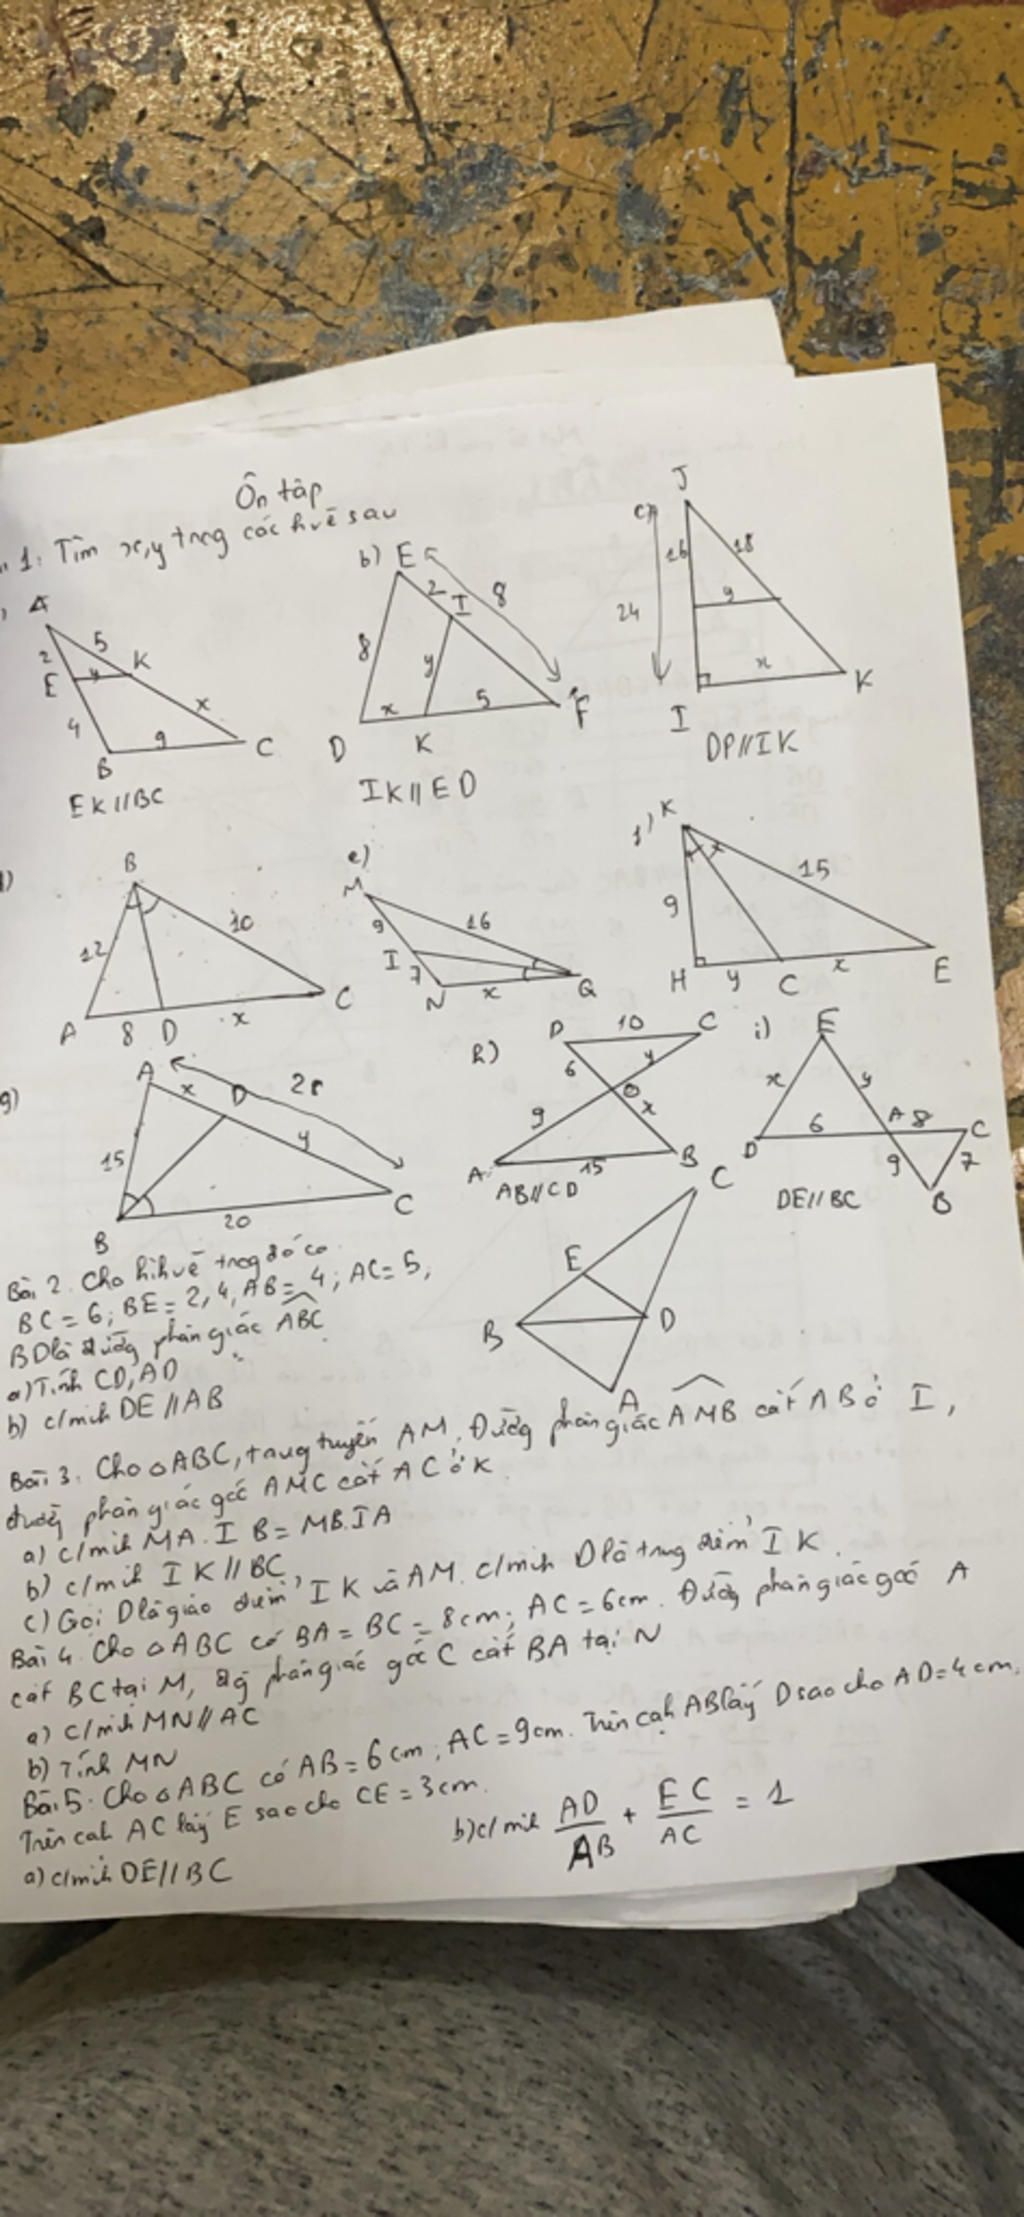 Ôn tập
1. Tìm x, y trog các h vẽ sau
A
2
5
E
y
K
4
x
9
B
C
EK // BC
b) E
2
I
8
8
y
x
5
D
K
F
IK // ED
c)
J
16
18
24
y
x
I
K
DP // IK
B
12
10
A
8
D
x
C
e)
M
9
16
I
7
N
x
Q
K
9
15
H
y
C
x
E
g)
A
x
D
y
15
B
20
C
h)
D
10
C
6
y
O
9
x
A
15
B
AB // CD
i)
E
x
y
6
A
8
D
C
9
7
B
DE // BC
C
E
B
D
A
Bài 2. Cho hình vẽ trog đó có
BC = 6; BE = 2,4, AB = 4; AC = 5,
BD là đườg phân giác ABC
a) Tính CD, AD
b) c/mih DE // AB
Bài 3. Cho △ABC, trung tuyến AM. Đườg phân giác AMB cắt AB ở I,
đườg phân giác góc AMC cắt AC ở K
a) c/mih MA. IB = MB. IA
b) c/mih IK // BC
c) Gọi D là giao điểm IK và AM. c/mih D là trug điểm IK.
Bài 4. Cho △ABC có BA = BC = 8cm; AC = 6cm. Đườg phân giác góc A
cắt BC tại M, đg phân giác góc C cắt BA tại N
a) c/mih MN // AC
b) Tính MN
Bài 5. Cho △ABC có AB = 6cm; AC = 9cm. Trên cạh AB lấy D sao cho AD = 4cm.
Trên cạh AC lấy E sao cho CE = 3cm.
a) c/mih DE // BC
b) c/mih AD/AB + EC/AC = 1